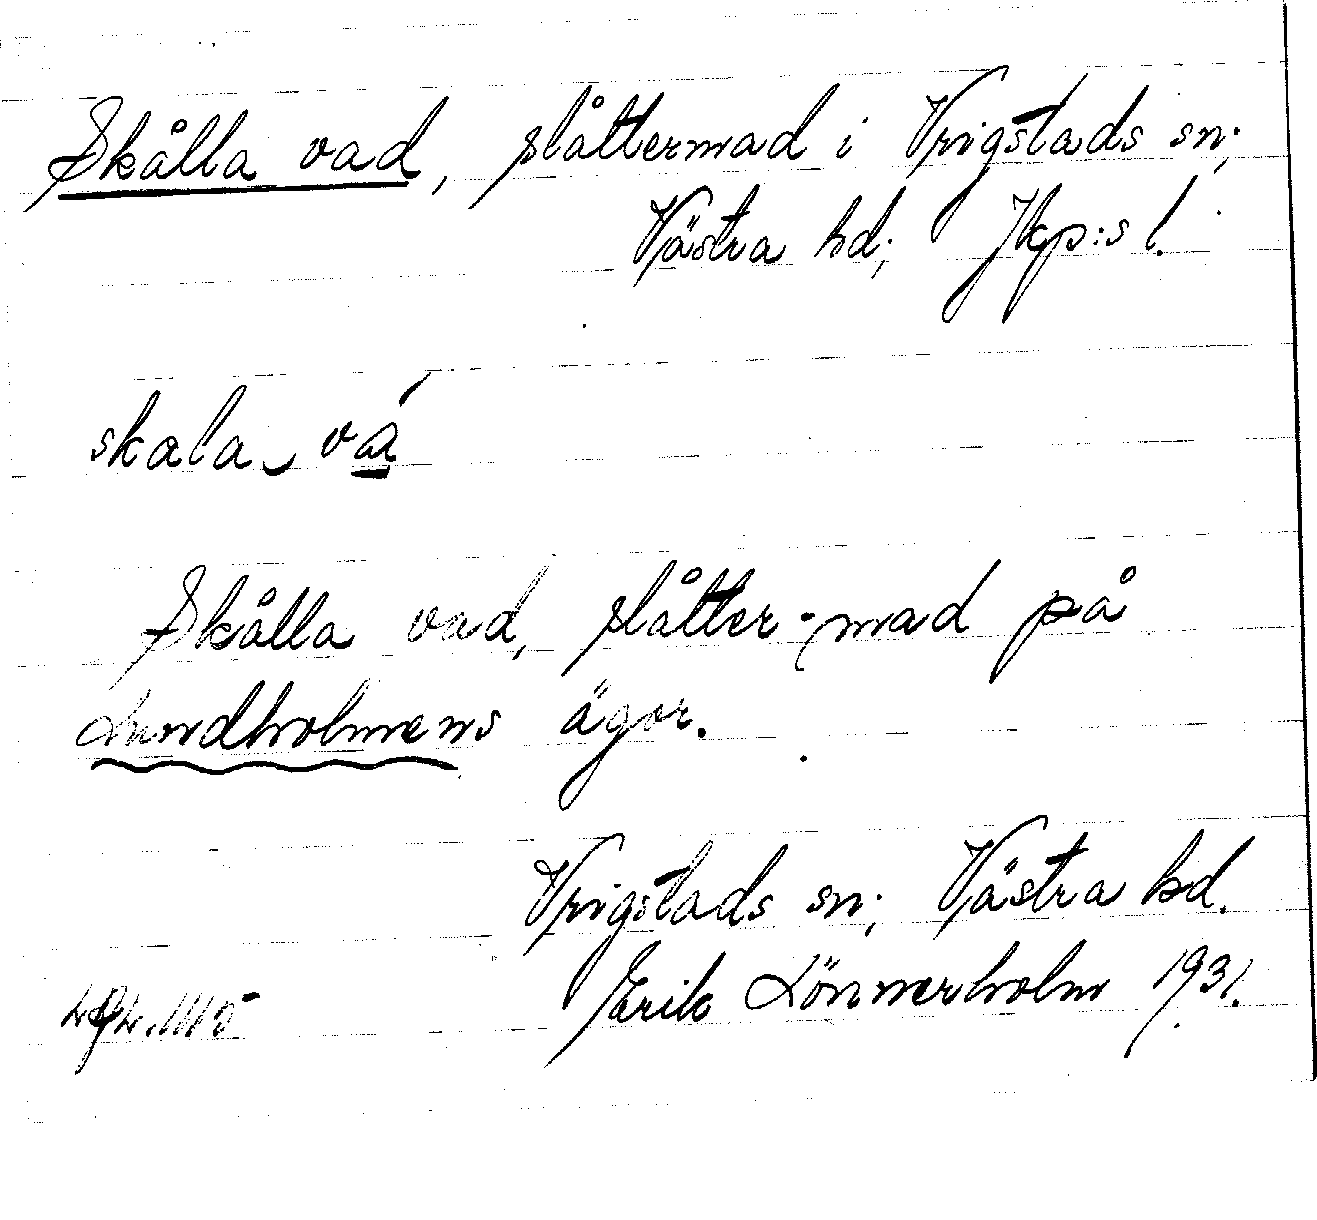 Skålla vad, slåttermad i Vrigstads sn;
Västra hd; Jkp:s l.
skala vá
Skålla vad, slåtter-mad på
Lundholmens ägor.
Vrigstads sn; Västra hd.
Erik Lönnerholm 1931.